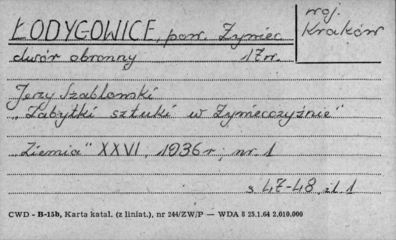 ŁODYGOWICE, pow. Żywiec
woj. Kraków
dwór obronny 17w.
Jerzy Szablowski
„Zabytki sztuki w Żywiecczyźnie"
„Ziemia" XXVI, 1936 r, nr. 1
s. 47-48, il. 1
CWD - B-15b, Karta katal. (z liniat.), nr 244/ZW/P — WDA 8 25.1.64 2.010.000